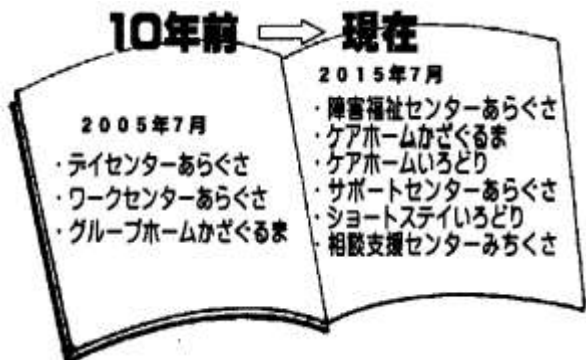 10年前 ⇨ 現在
2005年7月
・デイセンターあらぐさ
・ワークセンターあらぐさ
・グループホームかざぐるま
2015年7月
・障害福祉センターあらぐさ
・ケアホームかざぐるま
・ケアホームいろどり
・サポートセンターあらぐさ
・ショートステイいろどり
・相談支援センターみちくさ